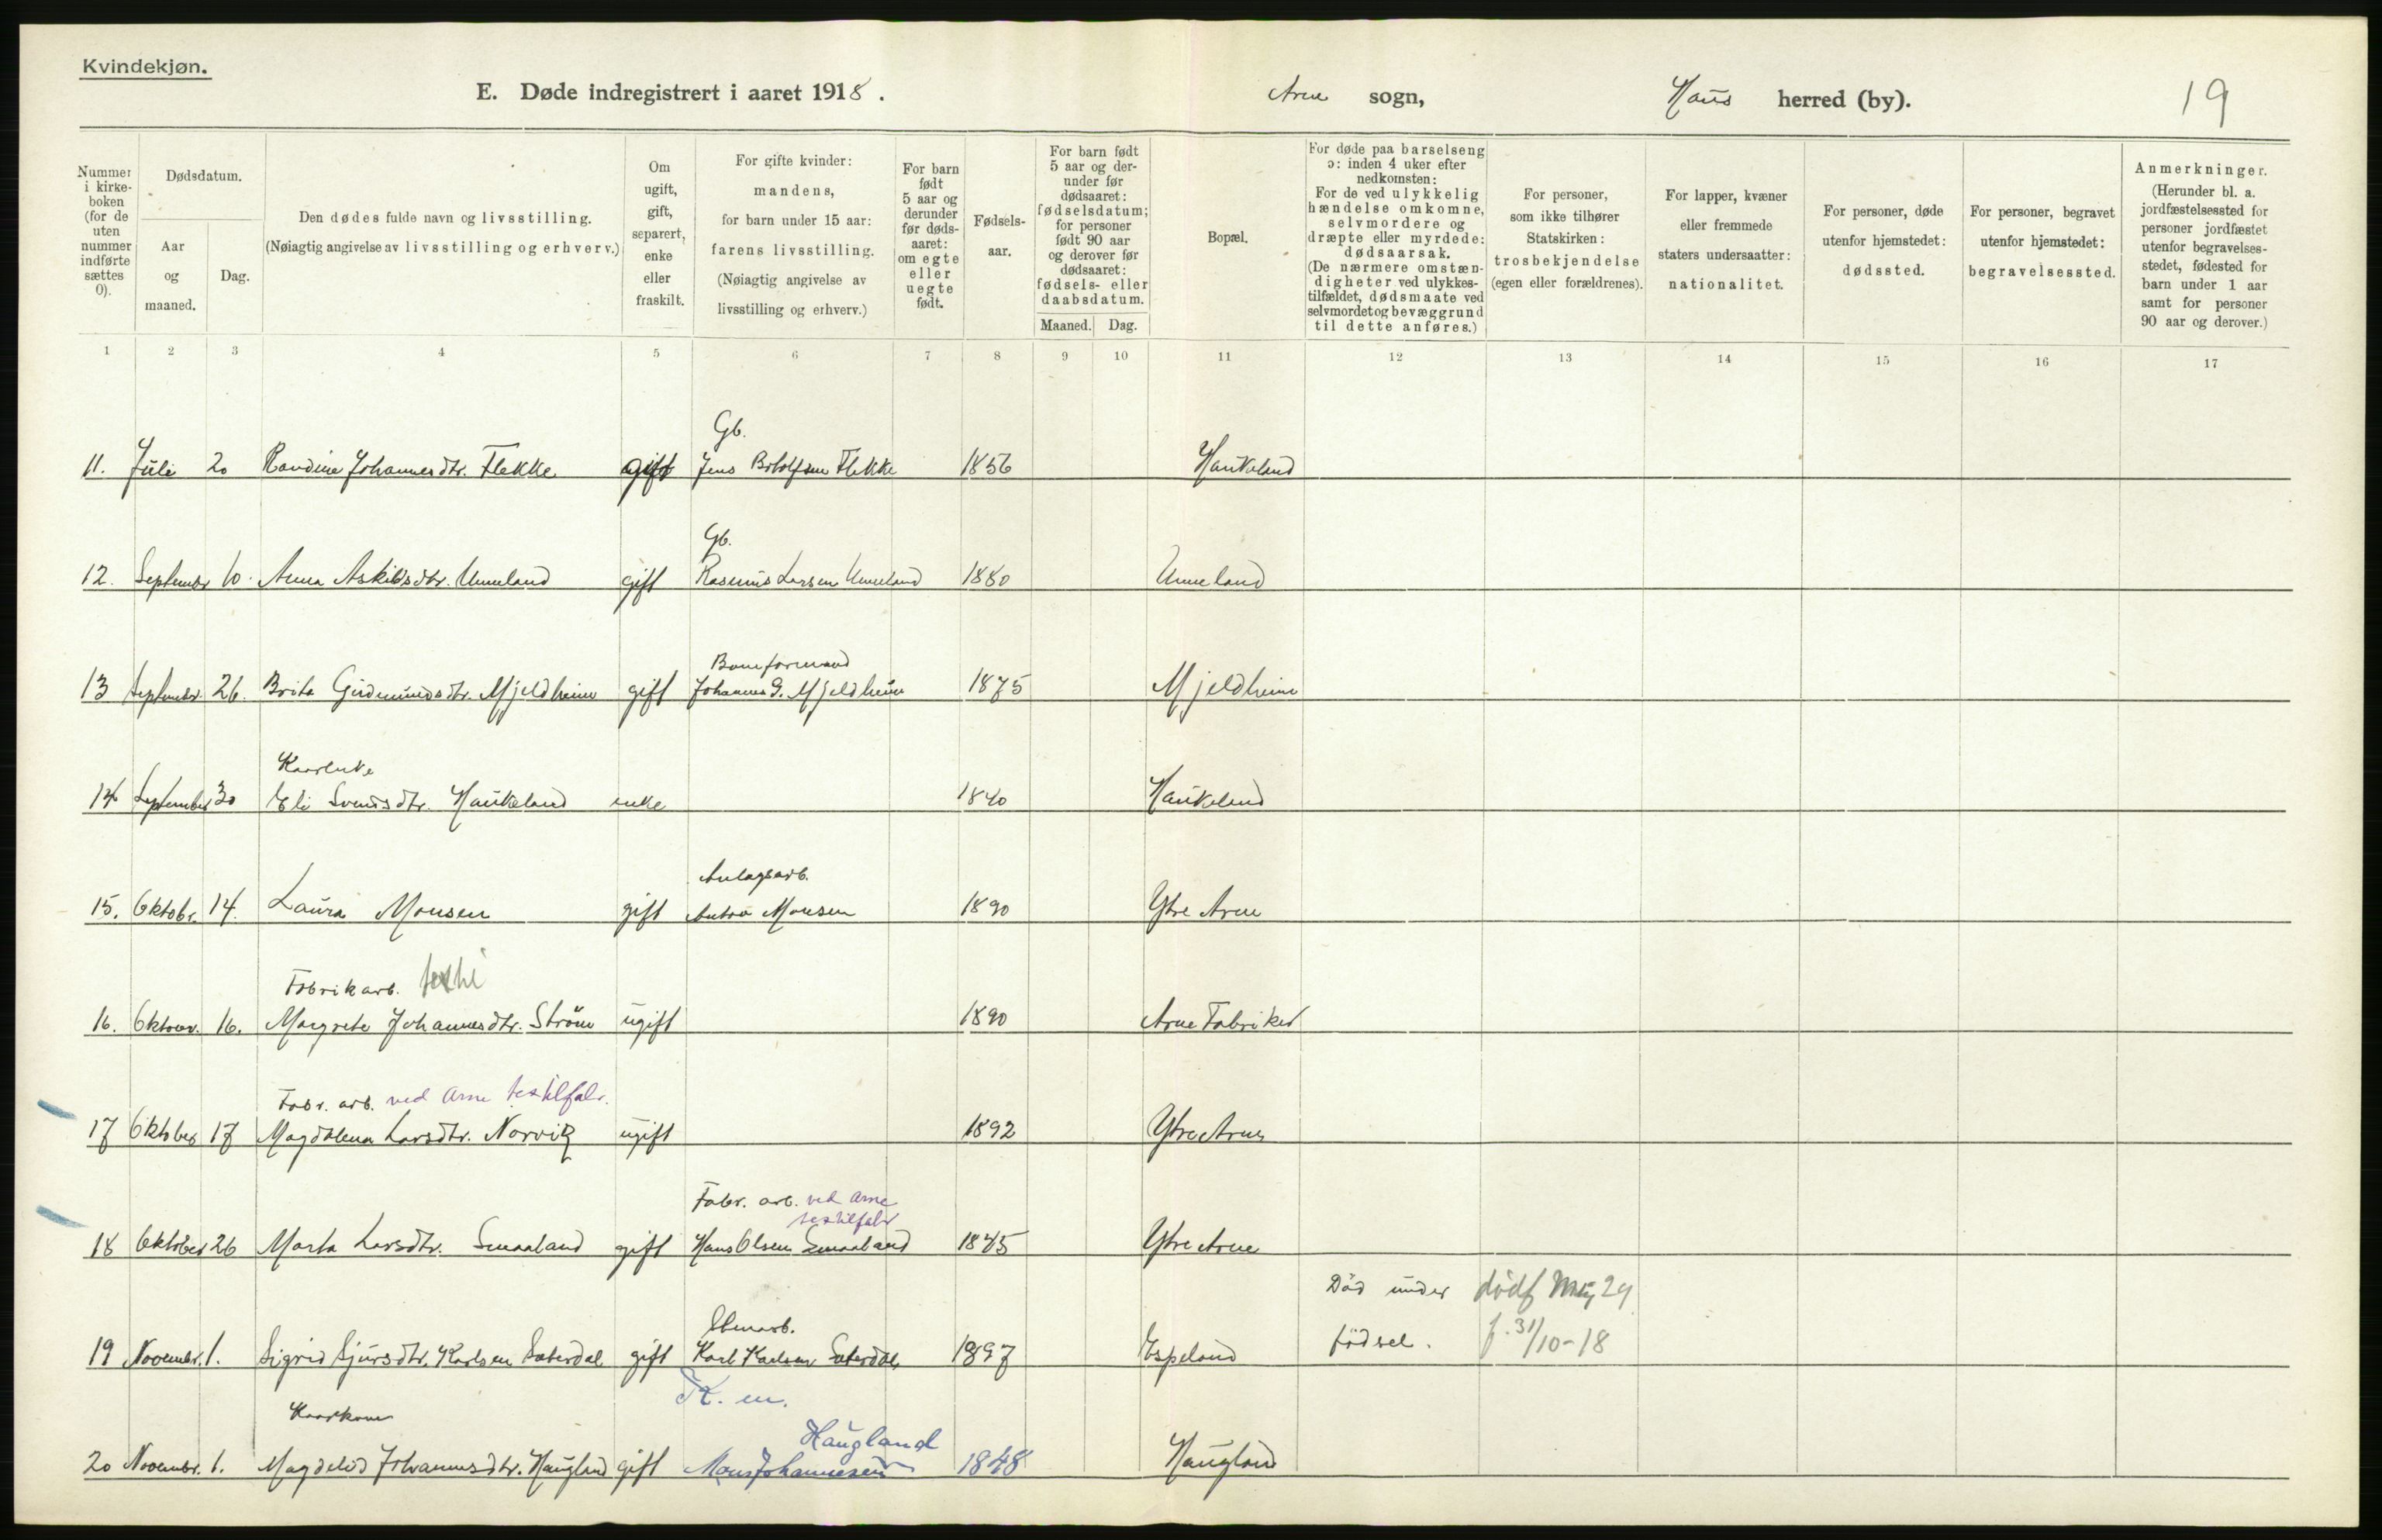 Kvindekjøn.
E. Døde indregistrert i aaret 1918.
Arne sogn,
Haus herred (by).
19
Nummer i kirkeboken (for de uten nummer indførte sættes 0).
Dødsdatum.
Aar og maaned.
Dag.
Den dødes fulde navn og livsstilling.
(Nøiagtig angivelse av livsstilling og erhverv.)
Om ugift, gift, separert, enke eller fraskilt.
For gifte kvinder: mandens, for barn under 15 aar: farens livsstilling. (Nøiagtig angivelse av livsstilling og erhverv.)
For barn født 5 aar og derunder før dødsaaret: om egte eller uegte født.
Fødselsaar.
For barn født 5 aar og derunder før dødsaaret: fødselsdatum; for personer født 90 aar og derover før dødsaaret: fødsels- eller daabsdatum.
Maaned. Dag.
Bopæl.
For døde paa barselseng ɔ: inden 4 uker efter nedkomsten: For de ved ulykkelig hændelse omkomne, selvmordere og dræpte eller myrdede: dødsaarsak. (De nærmere omstændigheter ved ulykkestilfældet, dødsmaate ved selvmordet og bevæggrund til dette anføres.)
For personer, som ikke tilhører Statskirken: trosbekjendelse (egen eller forældrenes).
For lapper, kvæner eller fremmede staters undersaatter: nationalitet.
For personer, døde utenfor hjemstedet: dødssted.
For personer, begravet utenfor hjemstedet: begravelsessted.
Anmerkninger. (Herunder bl. a. jordfæstelsessted for personer jordfæstet utenfor begravelsesstedet, fødested for barn under 1 aar samt for personer 90 aar og derover.)
1 2 3 4 5 6 7 8 9 10 11 12 13 14 15 16 17
Gb.
11. Juli 20 Randine Johannesdtr. Flekke gift Jens Botolfsen Flekke 1856 Haukeland
Gb.
12. Septembr 10. Anna Askildsdtr. Unneland gift Rasmus Larsen Unneland 1880 Unneland
Baneformand
13 Septembr. 26. Brita Gudmundsdtr. Mjeldheim gift Johannes G. Mjeldheim 1875 Mjeldheim
Kaarenke
14 September 30 Eli Svendsdtr. Haukeland enke 1840 Haukeland
Anlagsarb.
15. Oktobr. 14. Laura Monsen gift Anton Monsen 1890 Ytre Arne
Fabrikarb. textil
16. Oktovr. 16. Margrete Johannesdtr. Strøm ugift 1890 Arne Fabriker
Fabr. arb. ved Arne textilfabr.
17 Oktober 17 Magdalena Larsdtr. Norvik ugift 1892 Ytre Arne
Fabr. arb. ved Arne
textilfabr
18 Oktober 26 Marta Larsdtr. Smaaland gift Hans Olsen Smaaland 1845 Ytre Arne
Død under dødf
19 Novembr. 1. Sigrid Sjursdtr. Karlsen Sæterdal gift Karl Karlsen Sæterdal 1897 Espeland fødsel. f. 31/10-18
K. m.
Kaarkone Haugland
20 Novembr. 1. Magdeli Johannesdtr. Haugland gift Mons Johannesen 1848 Haugland